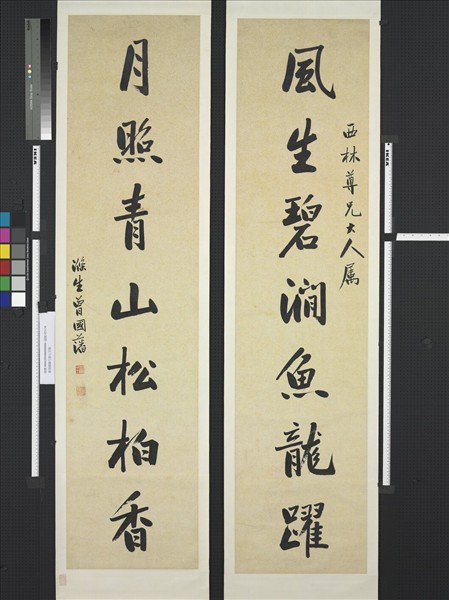 風生碧澗魚龍躍
西林尊兄大人属
月照青山松柏香
滌生曾國藩